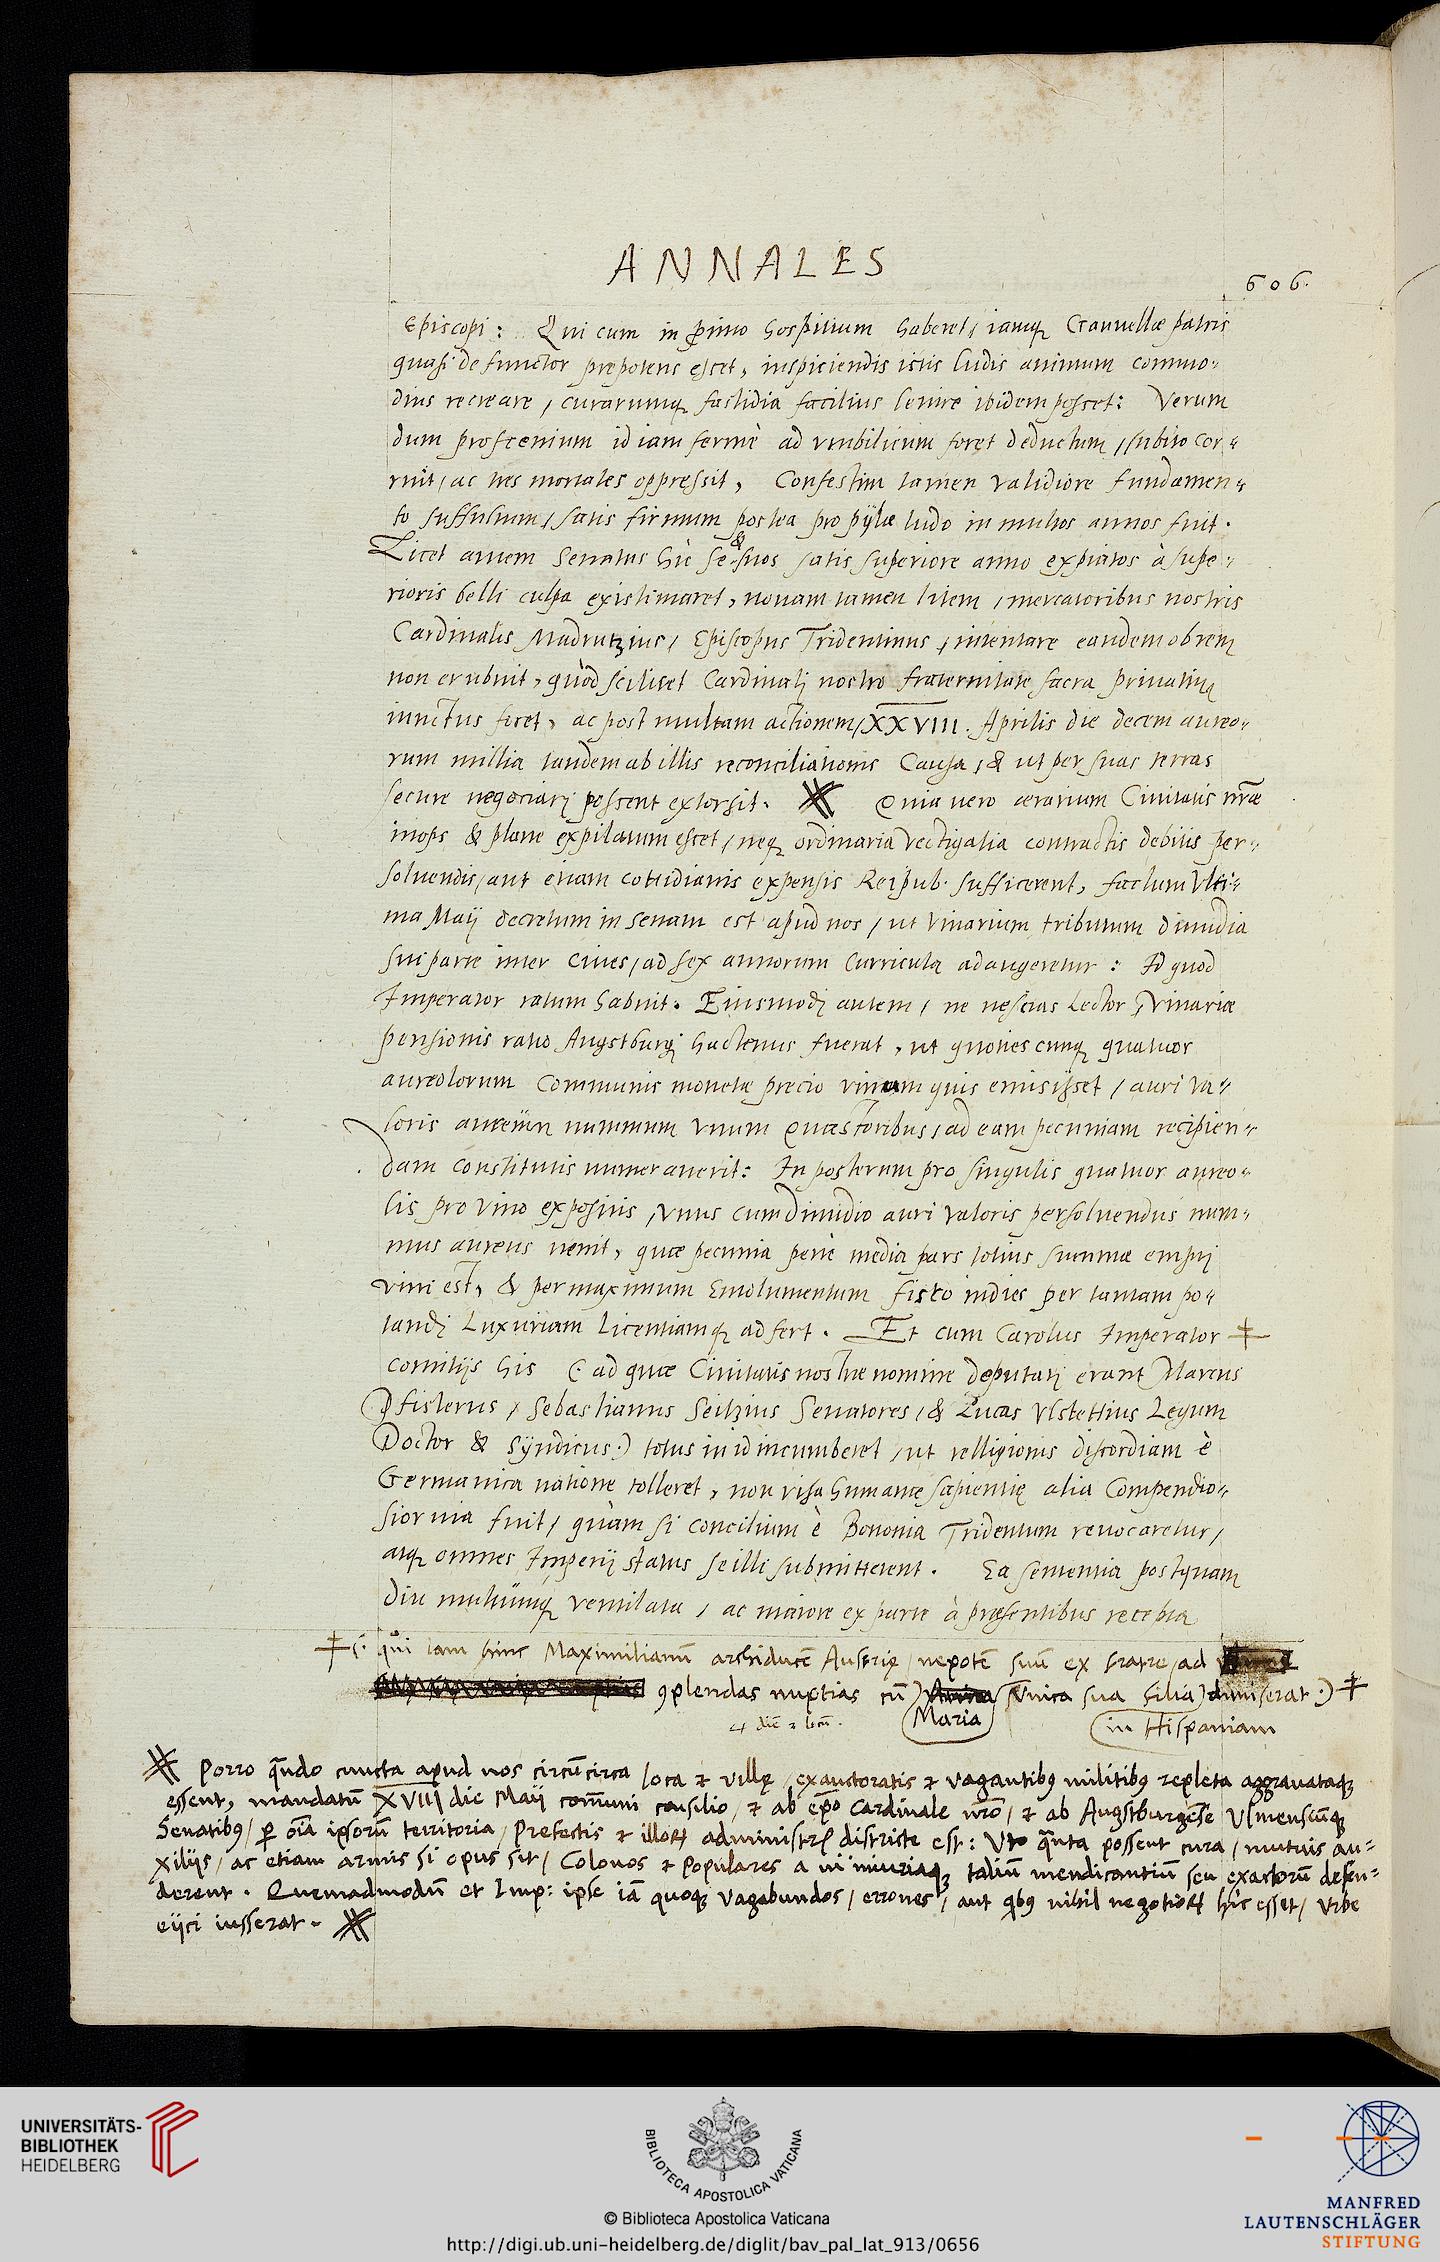 ANNALES
606.
Episcopi: Qui cum in primo hospitium haberet, iamq Granuellæ patris
quasi defunctor prepotens esset, inspiciendis istis ludis animum commo-
dius recreare, curarumq fastidia facilius lenire ibidem posset: Verum
dum proscenium id iam fermè ad vmbilicum foret deductum, subito cor-
ruit, ac tres mortales oppressit, Confestim tamen validiore fundamen-
to suffultum, satis firmum postea pro pÿlæ ludo in multos annos fuit.
Licet autem Senatus hìc se & suos satis superiore anno expiatos à supe-
rioris belli culpa existimaret, nouam tamen litem, mercatoribus nostris
Cardinalis Madrutzius, Episcopus Tridentinus, intentare eandem ob rem
non erubuit, quòd scilicet Cardinali nostro fraternitate sacra priuatimq
iunctus foret, ac post multam actionem, XXVIII. Aprilis die decem aureo-
rum millia tandem ab illis reconciliationis Causa, & ut per suas terras
secure negociari possent extorsit. Quia uero ærarium Ciuitatis nræ
inops & plane expilatum esset, neq ordinaria vectigalia contractis debitis per-
soluendis, aut etiam cottidianis expensis Reipub. sufficerent, factum Vlti-
ma Maij decretum in senatu est apud nos, ut Vinarium tributum dimidia
sui parte inter Ciues, ad sex annorum Curricula adaugeretur: Id quod
Imperator ratum habuit. Eiusmodi autem, ne nescias Lector, Vinariæ
pensionis ratio Augstburgi hactenus fuerat, ut quotiescunq quatuor
aureolorum Communis monetæ precio vinum quis emisisset, auri va-
loris aureum nummum vnum Quæstoribus, ad eam pecuniam recipien-
dam constitutis numerauerit: In posterum pro singulis quatuor aureo-
lis pro vino expositis, vnus cum dimidio auri valoris persoluendus num-
mus aureus uenit, quæ pecunia penè media pars totius summæ empti
vini est, & per maximum Emolumentum fisco indies per tantam po-
tandi Luxuriam Licentiamq adfert. Et cum Carolus Imperator ‡
comitijs his (: ad quæ Ciuitatis nostræ nomine deputati erant Marcus
Pfisterus, Sebastianus Seitzius Senatores, & Lucas Vlstettius Legum
Doctor & Sÿndicus:) totus in id incumberet, ut relligionis discordiam è
Germanica natione tolleret, non visa humanæ sapientię alia Compendio-
sior uia fuit, quàm si concilium è Bononia Tridentum reuocaretur,
atq omnes Imperij status se illi submitterent. Ea sententia postquam
diu multumq ventilata, ac maiore ex parte à præsentibus recepta
‡ (: qui iam hinc Maximilianū archiducē Austrię, nepotē suū ex fratre, ad
9plendas nuptias cū Maria Vnica sua filia, dimiserat:) ‡
in Hispaniam
Porro qūando cuncta apud nos circūcirca loca et villę, exauctoratis et vagantibꝰ militibꝰ repleta aggrauataq
essent, mandatū XVIII die Maij com̄uni consilio, et ab ep̄o Cardinale nr̄o, et ab Augstburgēse Vlmenseūq
Senatibꝰ, ꝑ oīa ipsorū territoria, Prefectis et illoꝝ administrꝭ districte est: Vt quāta possent cura, mutuis au-
xilijs, ac etiam armis si opus sit, Colonos et Populares a ui iniuriaq taliū mendicantiū seu exactorū defen-
derent. Quemadmodū et Imp: ipse iā quoq vagabundos, errones, aut qibꝰ nihil negotioꝝ hìc esset, vrbe
eijci iusserat.
UNIVERSITÄTS-
BIBLIOTHEK
HEIDELBERG
BIBLIOTECA APOSTOLICA VATICANA
© Biblioteca Apostolica Vaticana
http://digi.ub.uni-heidelberg.de/diglit/bav_pal_lat_913/0656
MANFRED
LAUTENSCHLÄGER
STIFTUNG